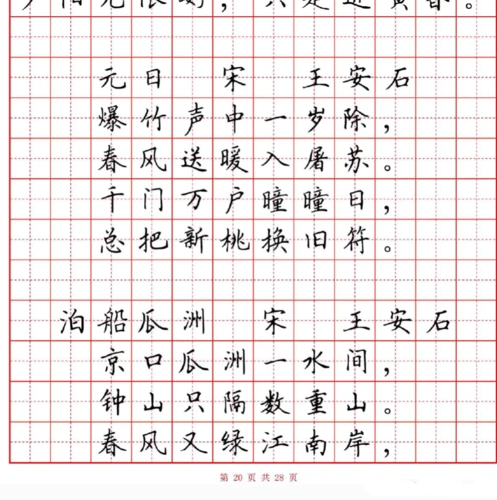 夕阳无限好，只是近黄昏。
元日 宋 王安石
爆竹声中一岁除，
春风送暖入屠苏。
千门万户曈曈日，
总把新桃换旧符。
泊船瓜洲 宋 王安石
京口瓜洲一水间，
钟山只隔数重山。
春风又绿江南岸，
第 20 页 共 28 页